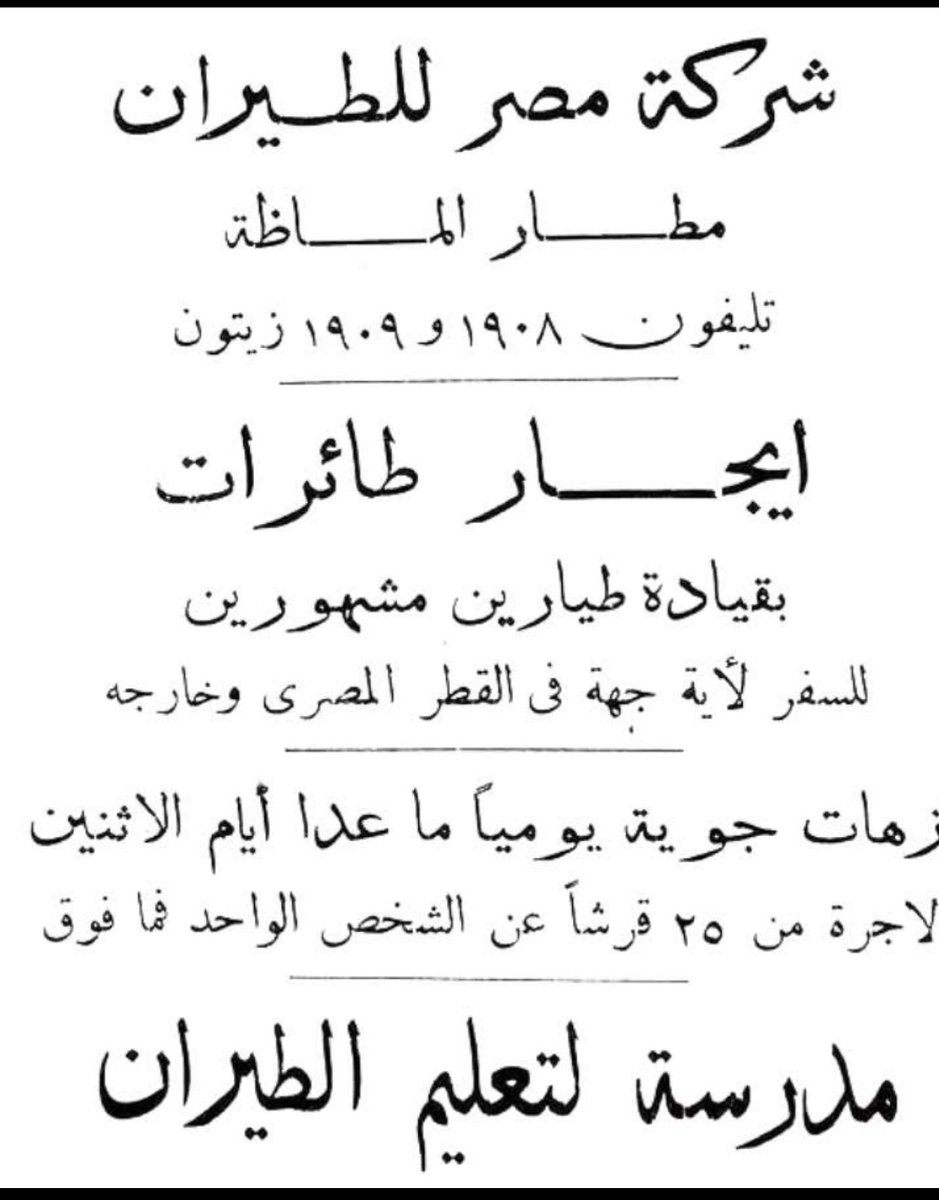 شركة مصر للطيران
مطار الماظة
تليفون ١٩٠٨ و ١٩٠٩ زيتون
ايجار طائرات
بقيادة طيارين مشهورين
للسفر لأية جهة فى القطر المصرى وخارجه
زهات جوية يومياً ما عدا أيام الاثنين
لاجرة من ٢٥ قرشاً عن الشخص الواحد فما فوق
مدرسة لتعليم الطيران